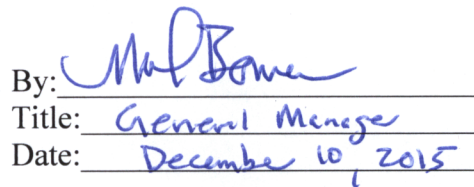 By:
Title: General Manager
Date: December 10, 2015